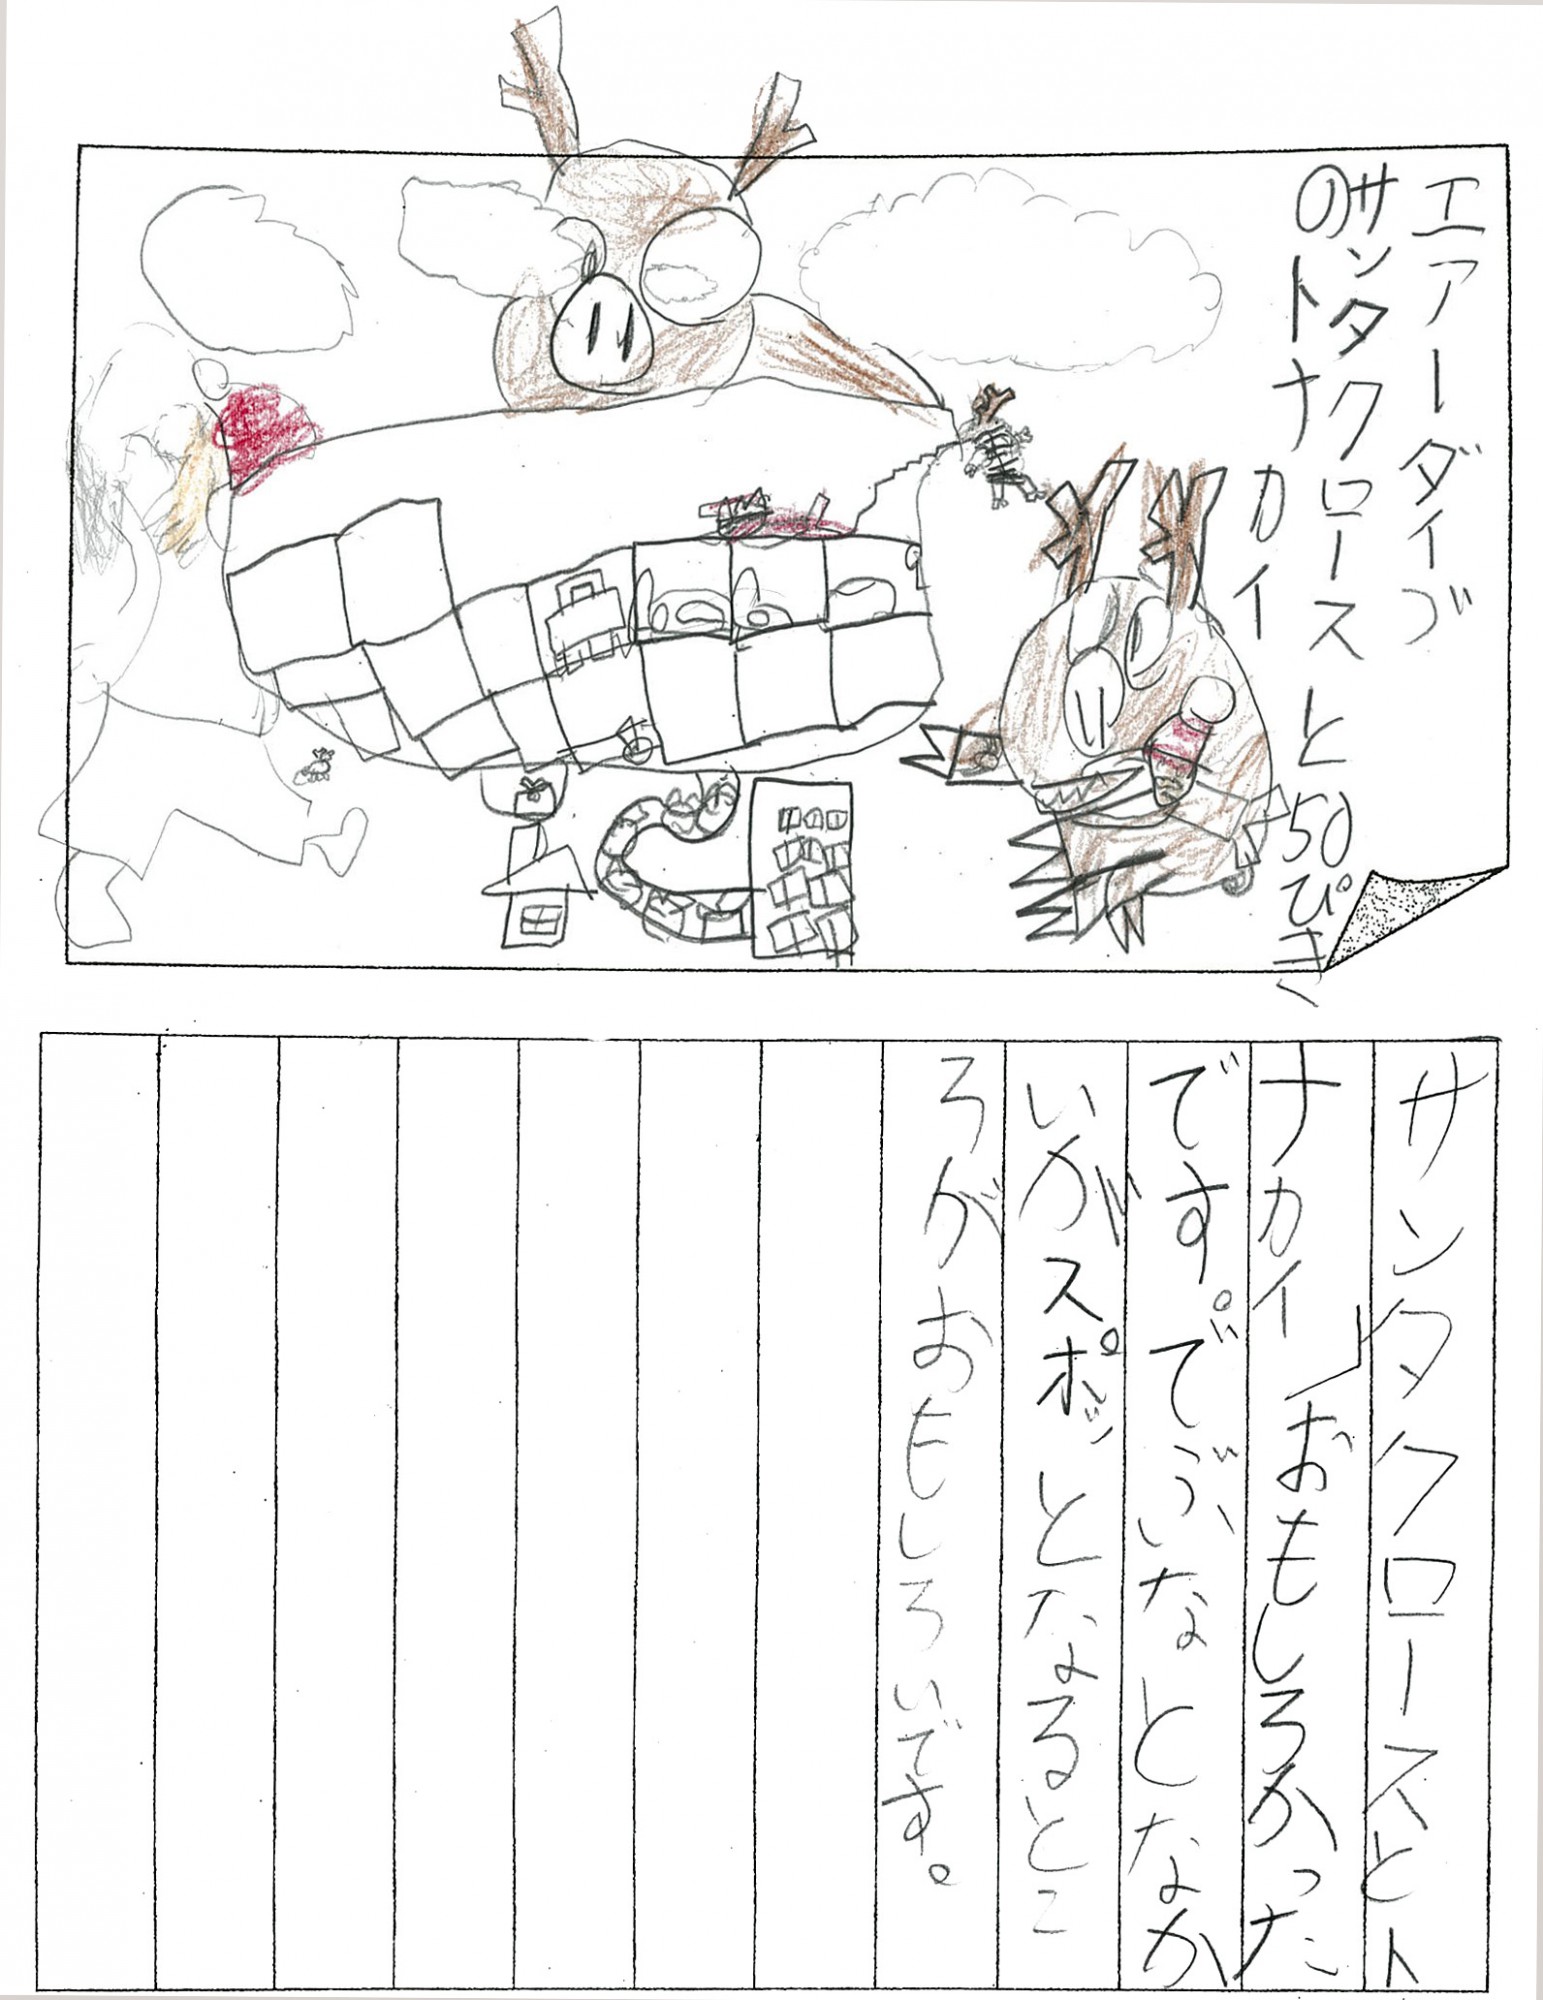 エアーダイブ
サンタクロースと50ぴき
のトナカイ
サンタクロースとト
ナカイ」おもしろかった
です。でぶいなとなか
いがスポッとなるとこ
ろがおもしろいです。